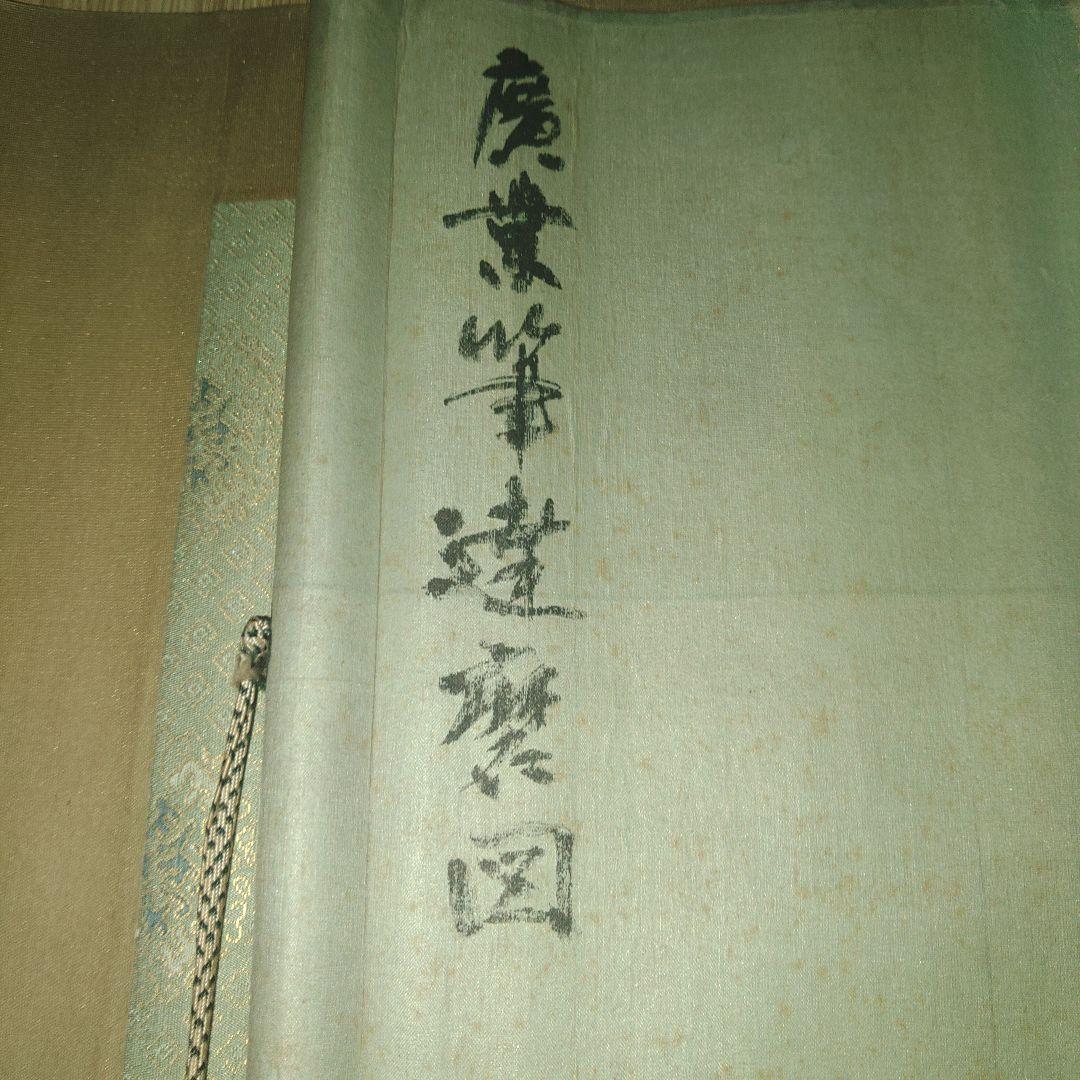 廣業筆達磨図